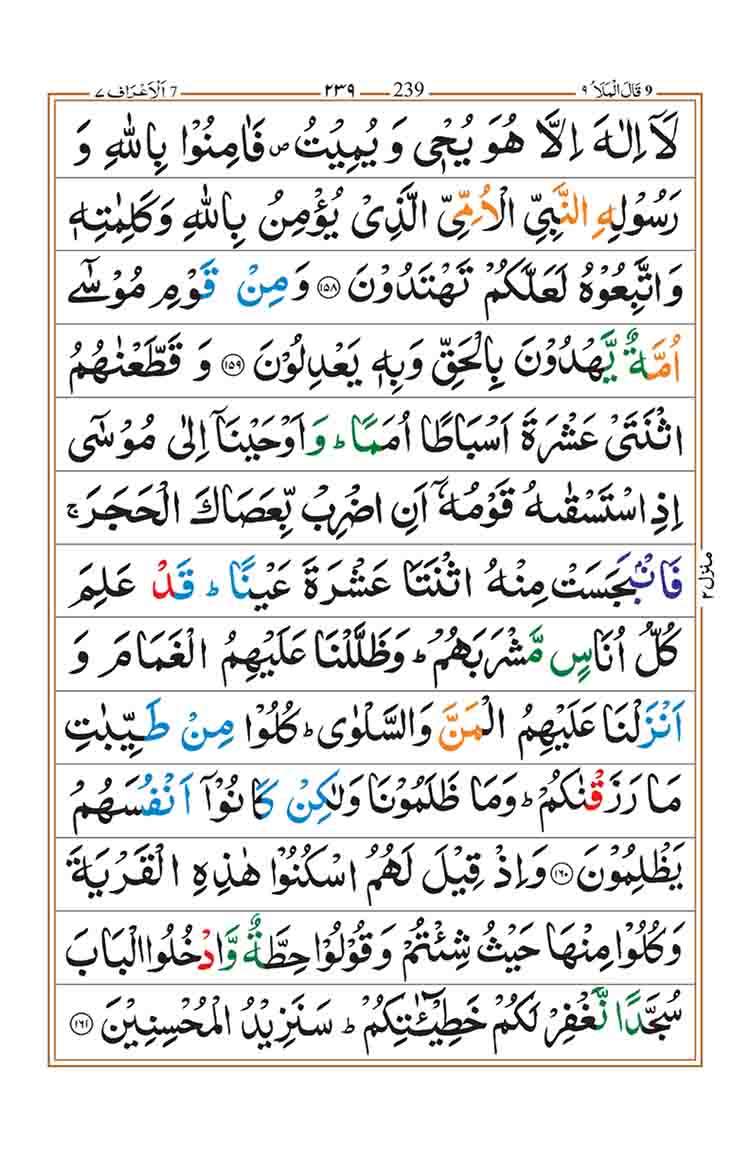 9 قَالَ الْمَلَاُ ٩ 239 ٢٣٩ 7 اَلْاَعْرَاف ٧
لَاۤ اِلٰهَ اِلَّا هُوَ یُحْیٖ وَ یُمِیْتُ ۪ فَاٰمِنُوْا بِاللّٰهِ وَ
رَسُوْلِهِ النَّبِیِّ الْاُمِّیِّ الَّذِیْ یُؤْمِنُ بِاللّٰهِ وَ كَلِمٰتِهٖ
وَ اتَّبِعُوْهُ لَعَلَّكُمْ تَهْتَدُوْنَ ﴿۱۵۸﴾ وَ مِنْ قَوْمِ مُوْسٰۤی
اُمَّةٌ یَّهْدُوْنَ بِالْحَقِّ وَ بِهٖ یَعْدِلُوْنَ ﴿۱۵۹﴾ وَ قَطَّعْنٰهُمُ
اثْنَتَیْ عَشْرَةَ اَسْبَاطًا اُمَمًا ؕ وَ اَوْحَیْنَاۤ اِلٰی مُوْسٰۤی
اِذِ اسْتَسْقٰىهُ قَوْمُهٗۤ اَنِ اضْرِبْ بِّعَصَاكَ الْحَجَرَ ۚ
فَانْۢبَجَسَتْ مِنْهُ اثْنَتَا عَشْرَةَ عَیْنًا ؕ قَدْ عَلِمَ
كُلُّ اُنَاسٍ مَّشْرَبَهُمْ ؕ وَ ظَلَّلْنَا عَلَیْهِمُ الْغَمَامَ وَ
اَنْزَلْنَا عَلَیْهِمُ الْمَنَّ وَ السَّلْوٰی ؕ كُلُوْا مِنْ طَیِّبٰتِ
مَا رَزَقْنٰكُمْ ؕ وَ مَا ظَلَمُوْنَا وَ لٰكِنْ كَانُوْۤا اَنْفُسَهُمْ
یَظْلِمُوْنَ ﴿۱۶۰﴾ وَ اِذْ قِیْلَ لَهُمُ اسْكُنُوْا هٰذِهِ الْقَرْیَةَ
وَ كُلُوْا مِنْهَا حَیْثُ شِئْتُمْ وَ قُوْلُوْا حِطَّةٌ وَّ ادْخُلُوا الْبَابَ
سُجَّدًا نَّغْفِرْ لَكُمْ خَطِیْٓـٰٔتِكُمْ ؕ سَنَزِیْدُ الْمُحْسِنِیْنَ ﴿۱۶۱﴾
منزل ۲